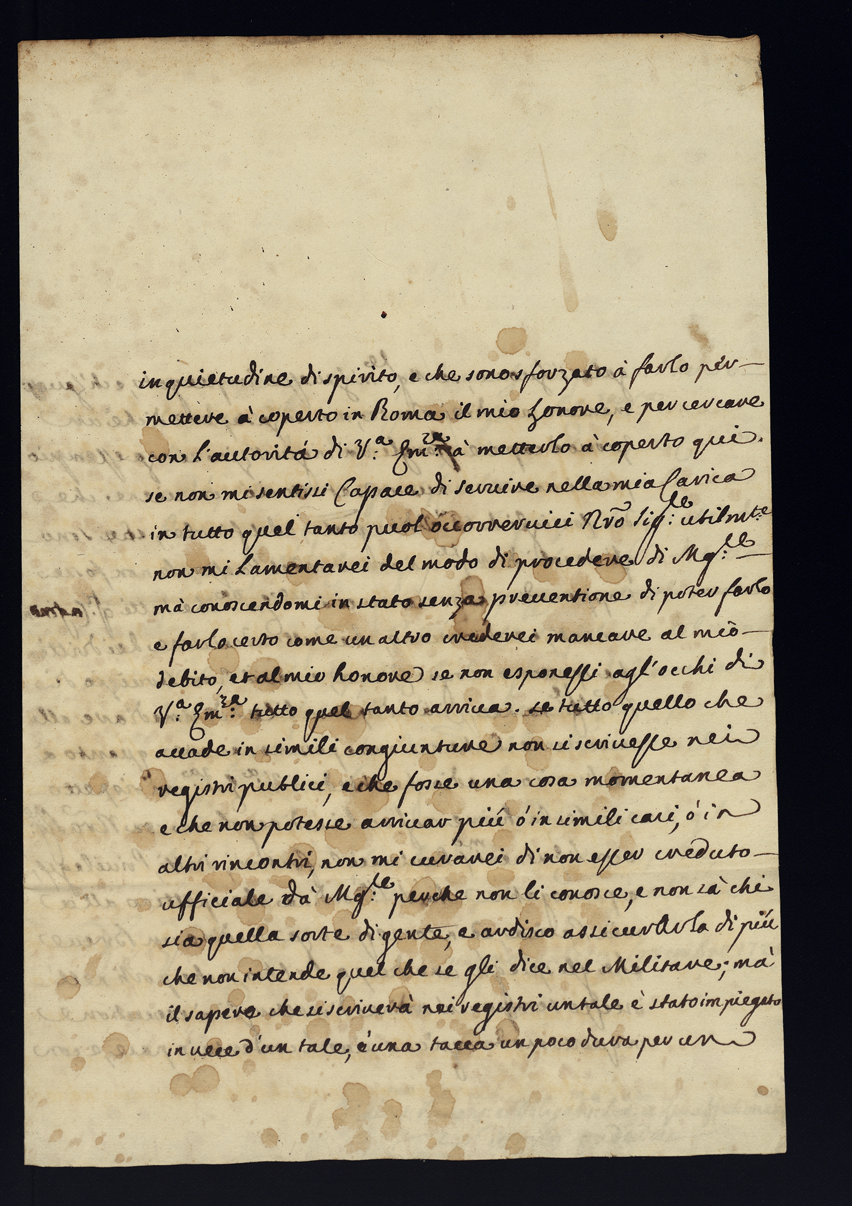 inquietudine di spirito, e che sono sforzato à farlo per
mettere à coperto in Roma il mio honore, e per cercare
con l'autoritá di V.ª Em.ᶻᵃ à metterlo à coperto qui.
se non mi sentissi Capace di servire nella mia Carica
in tutto quel tanto puol occorrervici Nrõ Sig.ʳᵉ utilmt.ᵉ
non mi Lamentarei del modo di procedere di Mg.ʳᵉ
mà conoscendomi in stato senza preventione di poter farlo
e farlo certo come un altro crederei mancare al mio
debito, et al mio honore se non esponessi agl'occhi di
V.ª Em.ᶻᵃ tutto quel tanto arriva. se tutto quello che
accade in simili congiunture non si scrivesse nei
registri publici, e che fosse una cosa momentanea
e che non potesse arrivar piú ó in simili casi, ó in
altri rincontri, non mi curarei di non esser creduto
ufficiale dà Mg.ʳᵉ perche non li conosce, e non sà chi
sia quella sorte di gente, e ardisco assicurarla di piú
che non intende quel che se gli dice nel Militare; mà
il sapere che si scriverà nei registri un tale è stato impiegato
in vece d'un tale, é una tacca un poco dura per un